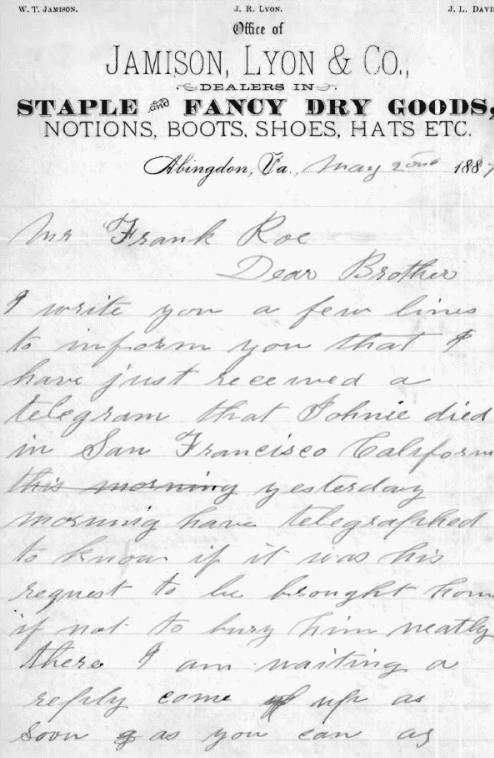 W. T. JAMISON. J. R. LYON. J. L. DAVI
Office of
JAMISON, LYON & CO.,
DEALERS IN
STAPLE and FANCY DRY GOODS,
NOTIONS, BOOTS, SHOES, HATS ETC.
Abingdon, Va., May 2nd 1887
Mr Frank Roe
Dear Brother
I write you a few lines
to inform you that I
have just received a
telegram that Johnie died
in San Francisco Californi
this morning yesterday
morning have telegraphed
to know if it was his
request to be brought hom
if not to bury him neatly
there I am waiting a
reply come up as
soon as you can as